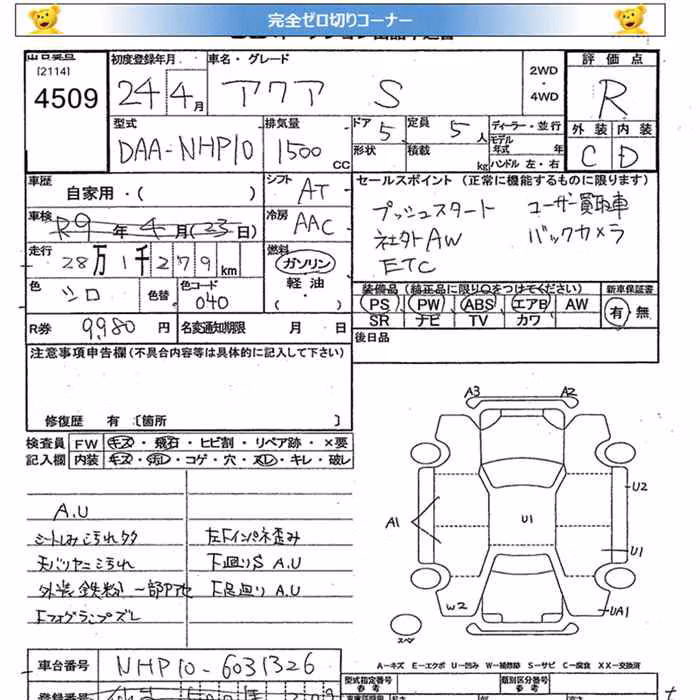 完全ゼロ切りコーナー
[2114]
4509
初度登録年月
24年4月
車名・グレード
アクア S
2WD
・
4WD
評価点
R
外装 内装
C D
型式
DAA-NHP10
排気量
1500 CC
ドア 5
形状
定員 5 人
積載 kg
ディーラー・並行
モデル年式 年式
ハンドル 左・右
車歴
自家用・( )
シフト AT
車検
R9年4月(23日)
冷房 AAC
走行
28万1千279km
燃料
ガソリン
軽油
・( )
色 シロ
色替
色コード 040
R券 9,980 円
名変通知期限 月 日
セールスポイント (正常に機能するものに限ります)
プッシュスタート ユーザー買取車
社外AW バックカメラ
ETC
装備品 (純正品に限り○をつけてください)
PS PW ABS エアB AW
SR ナビ TV カワ
新車保証書
有・無
後日品
注意事項申告欄(不具合内容等は具体的に記入して下さい)
修復歴 有 [箇所 ]
検査員記入欄
FW キズ・飛石・ヒビ割・リペア跡・×要
内装 キズ・汚レ・コゲ・穴・スレ・キレ・破レ
A.U
シートしみ こうれ
天バリヤニこうれ
外装鉄粉 一部
Fフォグランプズレ
左Fインパネ歪み
下廻りS A.U
F足廻り A.U
A3
A2
A1
U1
U2
U1
W2
UA1
スペア
A-キズ E-エクボ U-凹み W-補修跡 S-サビ C-腐食 XX-交換済
車台番号 NHP10-6031326
型式指定番号
参考
類別区分番号
参考
登録番号